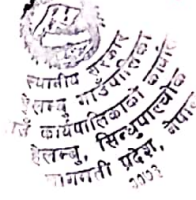 स्थानीय सरकार
हेलम्बु गाउँपालिका
गाउँ कार्यपालिकाको कार्यालय
हेलम्बु, सिन्धुपाल्चोक
बागमती प्रदेश, नेपाल
२०७३